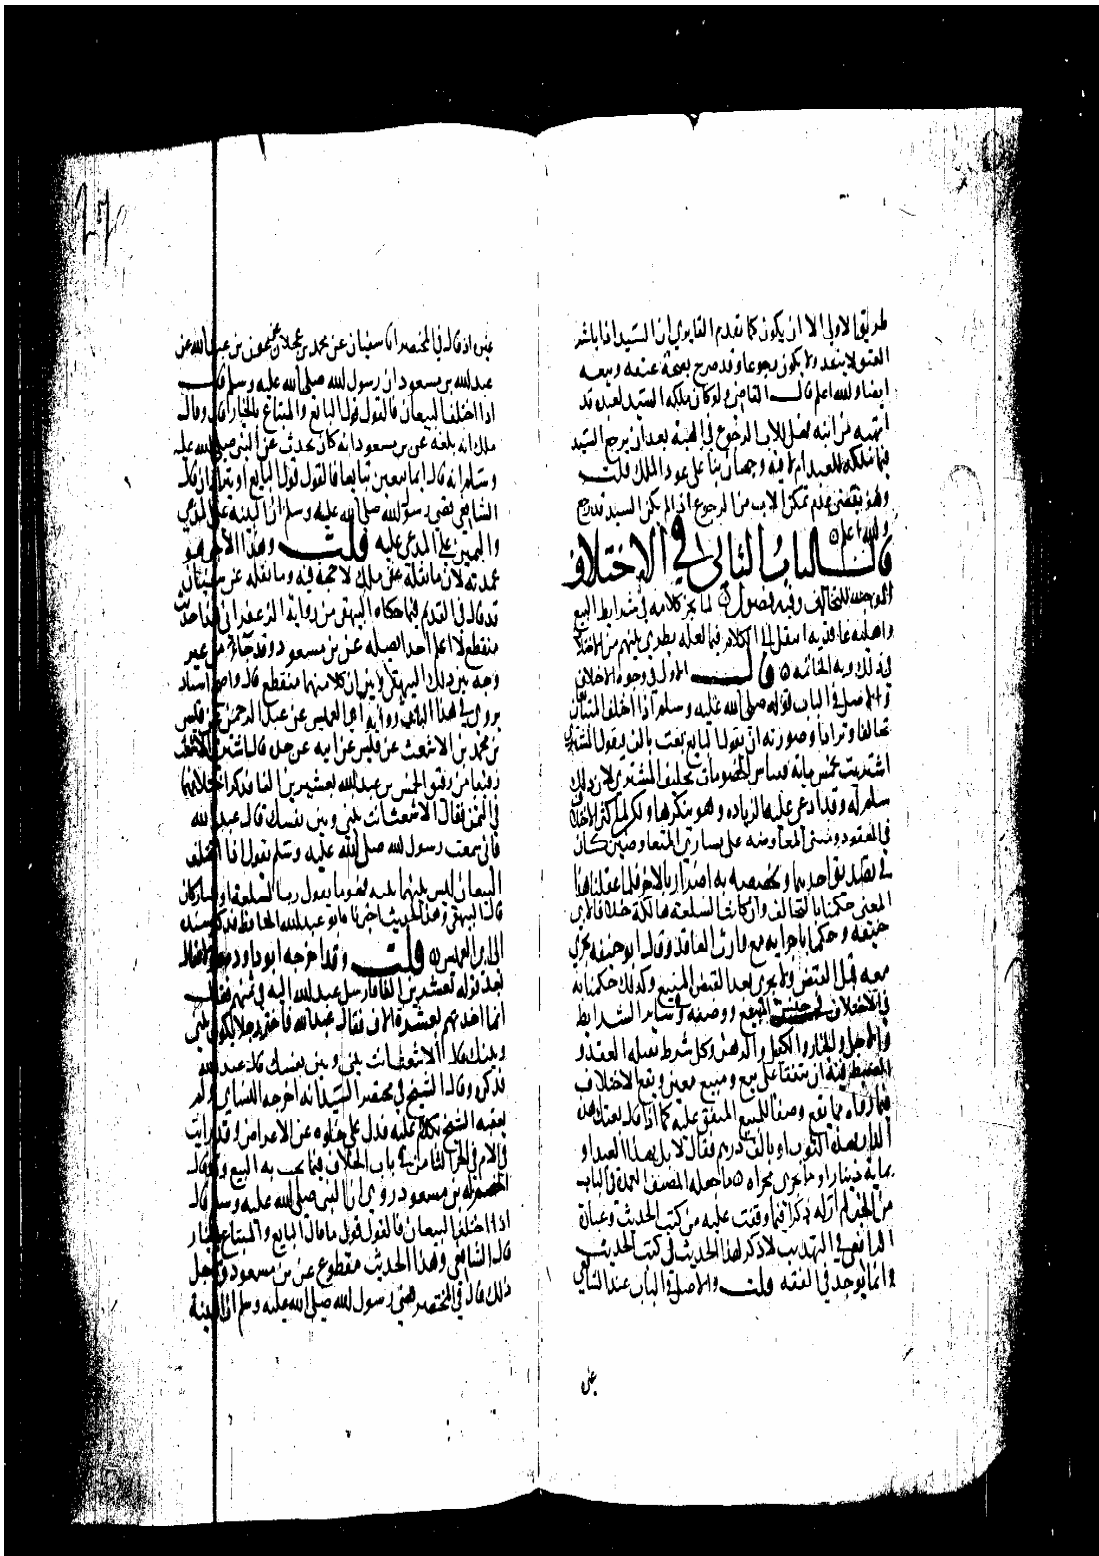 طريق الاولى الا ان يكون كما تقدم ان السيد اذا باشر
العتق لا ينفذ ولا يكون رجوعا وقد صرح بصحة عتقه وبيعه
ايضا والله اعلم قال القاضي ولو كان ملكه السيد لعبده قد
اتهبه من ابنه فهل للاب الرجوع في الهبة بعد ان يرجع السيد
فيما ملكه للعبد ام لا فيه وجهان بنا على عود الملك قلت
وهو يقتضي عدم تمكن الاب من الرجوع اذا لم يكن السيد قد رجع
والله اعلم
قال الباب الثاني في الاختلاف
الموجب للتحالف وفيه فصول لما نجز كلامه في شرايط البيع
انتقل الى الكلام فيما لعله يطرى بينهم من الاختلاف
في ذلك وبه الخاتمة قال الاول في وجوه الاختلاف
والاصل في الباب قوله صلى الله عليه وسلم اذا اختلف المتبايعان
تحالفا وترادا وصورته ان يقول البايع بعت بالف فيقول المشتري
اشتريت بخمس ماية فقياس الخصومات تحليف المشتري لان ذلك
سلم له وقد ادعى عليه الزيادة وهو ينكرها ولكن لما كثر الاختلاف
في العقود ومبنى المعاوضة على تساوي المتعاوضين كان
في تصديق احدهما وتخصيصه به اضرار بالاخر فلما عقلنا هذا
المعنى حكمنا بالتحالف وان كانت السلعة هالكة خلافا لابي
حنيفة وحكمنا باجرايه مع وارث العاقد وقال ابو حنيفة يجري
معه قبل القبض ولا يجري بعد القبض وكذلك حكمنا به
في الاختلاف في جنس المبيع ووصفه وفي ساير الشرايط
والاجل والخيار والكفيل والرهن وكل شرط يقبله العقد و
الضبط فيه ان يتفقا على بيع ومبيع معين ويقع الاختلاف
فيما وراه مما يقع وصفا للبيع المتفق عليه كما اذا قال بعتك هذه
الدار بهذا الثوب او بالف درهم فقال لا بل بهذا العبد او
بماية دينار او ما يجري مجراه ما جعله المصنف العمدة في الباب
من الخبر لم ار له ذكرا فيما وقفت عليه من كتب الحديث وعبارة
الرافعي في التهذيب لا ذكر لهذا الحديث في كتب الحديث
وانما يوجد في الفقه قلت والاصل في الباب عند الشافعي
عن
اذ قال في المختصر ان سفيان عن محمد بن عجلان عن عون بن عبد الله عن
عبد الله بن مسعود ان رسول الله صلى الله عليه وسلم قال
اذا اختلف البيعان فالقول قول البايع والمبتاع بالخيار قال وقال
ملك انه بلغه عن بن مسعود انه كان يحدث عن النبي صلى الله عليه
وسلم انه قال ايما بيعين تبايعا فالقول قول البايع او يترادان قال
الشافعي قضى رسول الله صلى الله عليه وسلم ان البينة على المدعي
واليمين على المدعى عليه قلت وهذا الاخير هو
عمدته لان ما نقله عن ملك لا حجة فيه وما نقله عن سفيان
قد قال في القديم فيما حكاه البيهقي من رواية الزعفراني هذا حديث
منقطع لا اعلم احدا يصله عن بن مسعود وقد جاء من غير
وجه بين ذلك البيهقي وبين ان كلا منها منقطع قال واصح اسناد
يروى في هذا الباب رواية ابي العميس عن عبد الرحمن بن قيس
بن محمد بن الاشعث بن قيس عن ابيه عن جده قال اشترى الاشعث
رقيقا من رقيق الخمس من عبد الله بعشرين الفا فذكر اختلافهما
في الثمن فقال الاشعث انت بيني وبين نفسك قال عبد الله
فاني سمعت رسول الله صلى الله عليه وسلم يقول اذا اختلف
البيعان ليس بينهما بينة فهو ما يقول رب السلعة او يتتاركان
قال البيهقي وهذا الحديث اخبرنا ابو عبد الله الحافظ فذكره بسنده
الى ابي العميس قلت وقد اخرجه ابو داود
بعد قوله بعشرين الفا فارسل عبد الله اليه في ثمنهم فقال
انما اخذتهم بعشرة الاف فقال عبد الله فاختر رجلا يكون بيني
وبينك قال الاشعث انت بيني وبين نفسك قال عبد الله
فذكره وقال الشيخ في مختصر السنن انه اخرجه النساي ولم
يعقبه الشيخ بكلام عليه فدل على خلوه عن الاعتراض وقد رايت
في الام في الجزء الثامن في باب الخلاف فيما يجب به البيع
بن مسعود روي ان النبي صلى الله عليه وسلم قال
اذا اختلف البيعان فالقول قول ما قال البايع والمبتاع بالخيار
قال الشافعي وهذا الحديث مقطوع عن بن مسعود ولاجل
ذلك قال في المختصر قضى رسول الله صلى الله عليه وسلم ان البينة